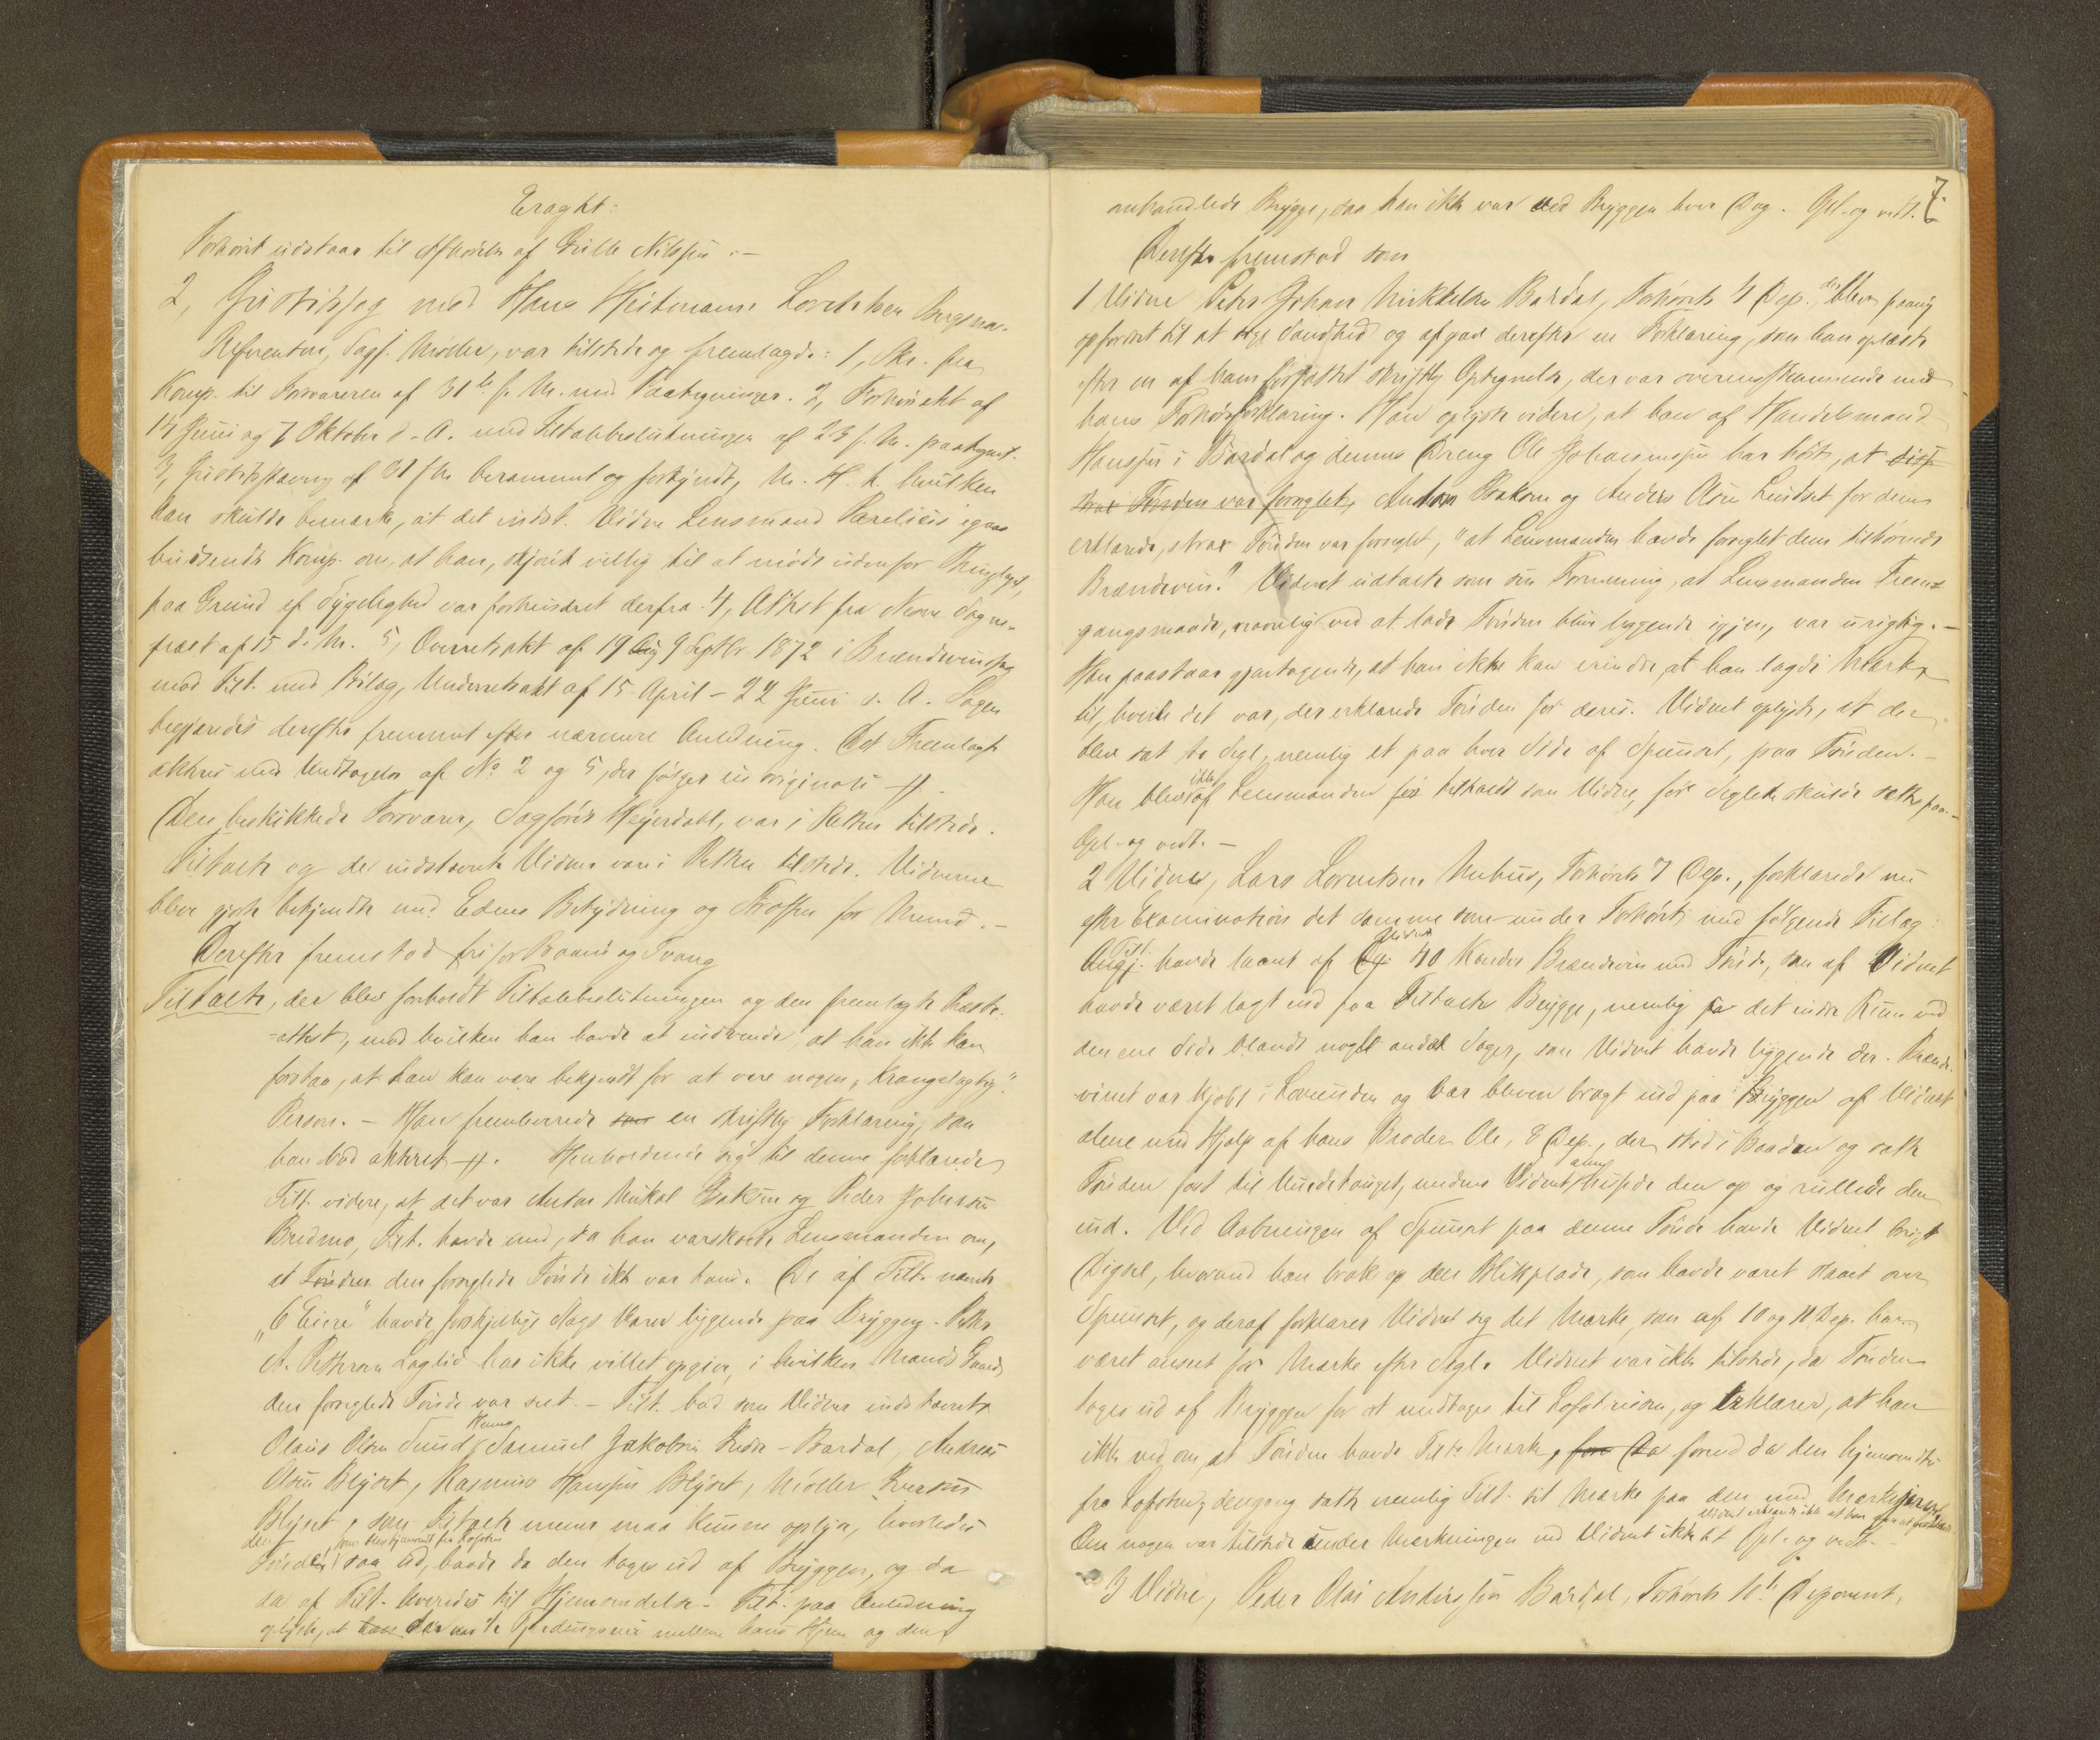 Eragtet:
Forhøret udstaar til Afhørelse af Nilssen :-
2, Justitssag mod Hans Heitmann Lorentsen
Referenten, Sagf. Møller, var tilstede og fremlagde: 1, Skr. fra
Komp. til Forsvareren af 31te f. M. med Paategninger. 2, Forhørsakt af
14 Juni og 7 Oktober d. A. med Tiltalebeslutningen af 23 f. M. paategnet.
3, Justitsstævning af 31 f M berammet og forkyndt, M. H. t. hvilken
han skulde bemærke, at det indst. Vidne Lensmand igaar
Komp. om, at han, skjønt villig til at møde udenfor
paa Grund af Sygelighed var forhindret derfra. 4, Attest fra Sogne-
præst af 15 d. M. 5, Overretsakt af 19 9 Septbr 1872 i Brændevinssag
mod Tilt. med Bilag, Underretsakt af 15 April - 22 Juni s. A. Sagen
begjæredes derefter fremmet efter nærmere Anledning. Det Fremlagte
aktes med Undtagelse af No 2 og 5, der følger in originali #.
Den beskikkede Forsvarer, Sagfører Heyerdahl, var i Retten tilstede.
Tiltalte og de indstævnte Vidner vare i Retten tilstede. Vidnerne
bleve gjorte bekjendte med Edens Betydning og Straffen for Mened.-
Derefter fremstod fri for Baand og Tvang
Tiltalte, der blev foreholdt Tiltalebeslutningen og den fremlagte Præste-
=attest, mod hvilken han havde at indvende, at han ikke kan
forstaa, at han kan være bekjendt for at være nogen "
Person. - Han fremleverede som en skriftlig Forklaring, som
han bad akteret #. Henholdende sig til denne forklarede
Tilt. videre, at det var Anton Mikal og Peder Johnsen
Bredmo, Tilt. havde med, da han varskoede Lensmanden om,
at Tønden den forseglede Tønde ikke var hans. De af Tilt. nævnte
"6 Eiere" havde forskjellige Slags Varer liggende paa Bryggen. Peter
A. Petersen har ikke villet opgive, i hvilken Mands
den forseglede Tønde var set. - Tilt. bad som Vidner indstævnte
Olaus Olsen Samuel Jakobsen - Bardal, Andreas
Olsen, Rasmus Hansen, Møller
, som Tiltalte mener maa kunne oplyse, hvorledes
den, som blev hjemsendt fra Lofoten
Tønde saa ud, baade da den toges ud af Bryggen, og da
den af Tilt. leveredes til Hjemsendelse. Tilt. paa Anledning
oplyste, at han der var 1/2 mellem hans Hjem og den
7.
omhandlede Brygge, saa han ikke var ved Bryggen hver Dag. Opl. og vedt.
Derefter fremstod som
1 Vidne Peter Johan Mikkelsen Bardal, Forhørets 4 Dep. der blev paany
opfordret til at sige Sandhed og afgav derefter en Forklaring, som han oplæste
efter en af ham forfattet skriftlig Optegnelse, der var overensstemmende med
hans Forhørsforklaring. Han oplyste videre, at han af Handelsmand
Hanssen i Bardal og dennes Dreng Ole Johannessen har hørt, at
strax Tønden var forseglet, Anton og Anders Olsen for dem
erklærede, strax Tønden var forseglet, "at Lensmanden havde forseglet dem tilhørende
Brændevin." Vidnet udtalte som sin Formening, at Lensmanden Frem-
gangsmaade, navnlig ved at lade Tønden blive liggende igjen, var urigtig.-
Han paastaar gjentagende, at han ikke kan erindre, at han lagde Mærke
til, hvem det var, der erklærede Tønden for deres. Vidnet oplyste, at der
blev sat to Segl, nemlig et paa hver Side af Spunset, paa Tønden.-
Han blev ikke af Lensmanden før tilkaldt som Vidne, før Seglet skulde sættes paa.-
Opl. og vedt.-
2 Vidne, Lars Lorentsen, Forhørets 7 Dep., forklarede nu
efter Examination det samme som under Forhøret med følgende Tillæg:
Tilt. havde laant af Vidnet 40 Kander Brændevin med Tønde, som af Vidnet
havde været lagt ind paa Tiltaltes Brygge, nemlig paa det indre Rum ved
den ene Side blandt noget andet Sager, som Vidnet havde liggende der. Brænde-
vinet var kjøbt i Lovunden og var bleven bragt ind paa Bryggen af Vidnet
alene med Hjælp af hans Broder Ole, 8 Dep., der stod i Baaden og satte
Tønden fast til Vindetouget, medens Vidnet alene heisede den op og rullede den
ind. Ved Aabningen af Spunset paa denne Tønde havde Vidnet brugt
Digsel, hvormed han brak op den Blikplade, som havde været slaaet over
Spunset, og deraf forklarer Vidnet sig det Mærke, som af 10 og 11 Dep. har
været anseet for Mærke efter Segl. Vidnet var ikke tilstede, da Tønden
toges ud af Bryggen for at medtages til Lofotreisen, og erklærer, at han
ikke ved om, at Tønden havde Tilt.s Mærke, førend da den hjemsendtes
fra Lofoten; dengang satte nemlig Tilt. sit Mærke paa den med Mærkejern.
Vidnet erklærede ikke at
Om nogen var tilstede under Mærkningen ved Vidnet ikke. Opl. og vedt.-
3 Vidne, Peder Olai Andersen Bardal, Forhørets 10de Deponent,